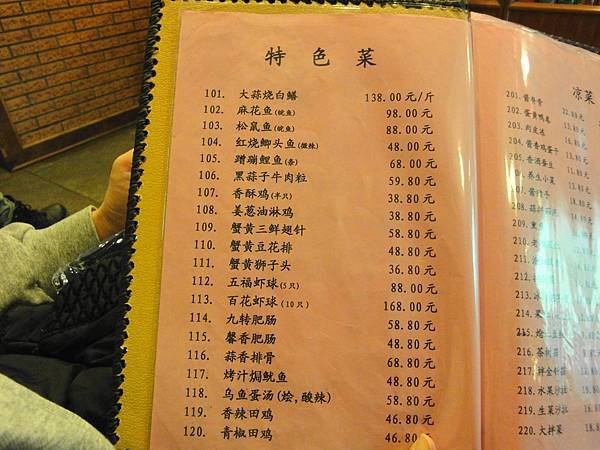 特色菜
101. 大蒜烧白鳝 138.00元/斤
102. 麻花鱼(桄鱼) 98.00元
103. 松鼠鱼(桄鱼) 88.00元
104. 红烧鲫头鱼(微辣) 48.80元
105. 蹭蹦鲤鱼(条) 68.00元
106. 黑蒜子牛肉粒 59.80元
107. 香酥鸡(半只) 38.80元
108. 姜葱油淋鸡 38.80元
109. 蟹黄三鲜翅针 58.80元
110. 蟹黄豆花排 48.80元
111. 蟹黄狮子头 36.80元
112. 五福虾球(5只) 88.00元
113. 百花虾球(10只) 168.00元
114. 九转肥肠 58.80元
115. 馨香肥肠 48.80元
116. 蒜香排骨 68.80元
117. 烤汁焗鱿鱼 48.80元
118. 乌鱼蛋汤(烩,酸辣) 58.80元
119. 香辣田鸡 46.80元
120. 青椒田鸡 46.80
凉菜
201. 酱牛骨
202. 蛋黄鸭卷
203. 肉皮冻
204. 酱香鸡蛋干
205. 香酒蚕豆
206. 养生小菜
207.
208.
209.
210. 老
211.
212.
213. 冰
214. 果
215.
216. 茶树菇
217. 拌金针菇
218. 水果沙拉 18.80
219. 生菜沙拉 16.80
220. 大拌菜 18.80